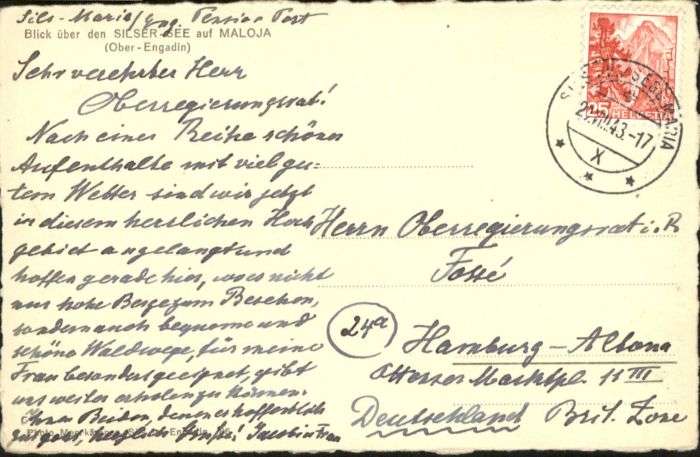 Sils-Maria/Eng. Pension Post
Blick über den SILSER-SEE auf MALOJA
(Ober-Engadin)
Sehr verehrter Herr
Oberregierungsrat!
Nach einer Reihe schöner
Aufenthalte mit viel gu=
tem Wetter sind wir jetzt
in diesem herrlichen Hoch
gebiet angelangt und
hoffen gerade hier, wo es nicht
nur hohe Berge zum Besehen,
sondern auch bequeme und
schöne Waldwege, für meine
Frau besonders geeignet, gibt
uns weiter erholen zu können.
Ihnen Beiden, denen es hoffentlich
gut geht, herzliche Grüsse! Jacobi u Frau
Photo
HELVETIA
25
SILS SEGL MARIA
43.-17
X
Herrn Oberregierungsrat i. R
Fossé
24a
Hamburg-Altona
Ottenser Marktpl. 11 III
Deutschland Brit. Zone